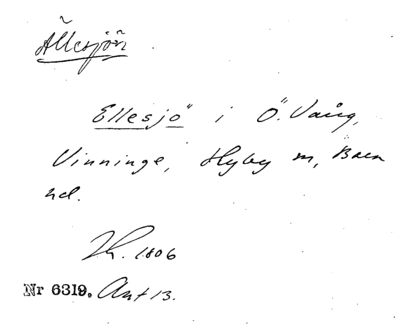 Ällesjön
Ellesjö" i Ö. Vång,
Vinninge, Hyby m, Bara
hd.
1806
Nr 6319. Ant 13.